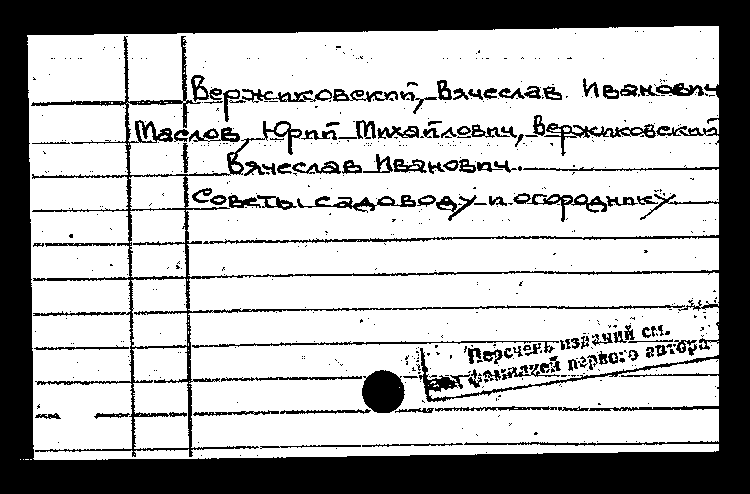 Вержиковский, Вячеслав Иванович
Маслов, Юрий Михайлович, Вержиковский,
Вячеслав Иванович.
Советы садоводу и огороднику
Перечень изданий см.
под фамилией первого автора